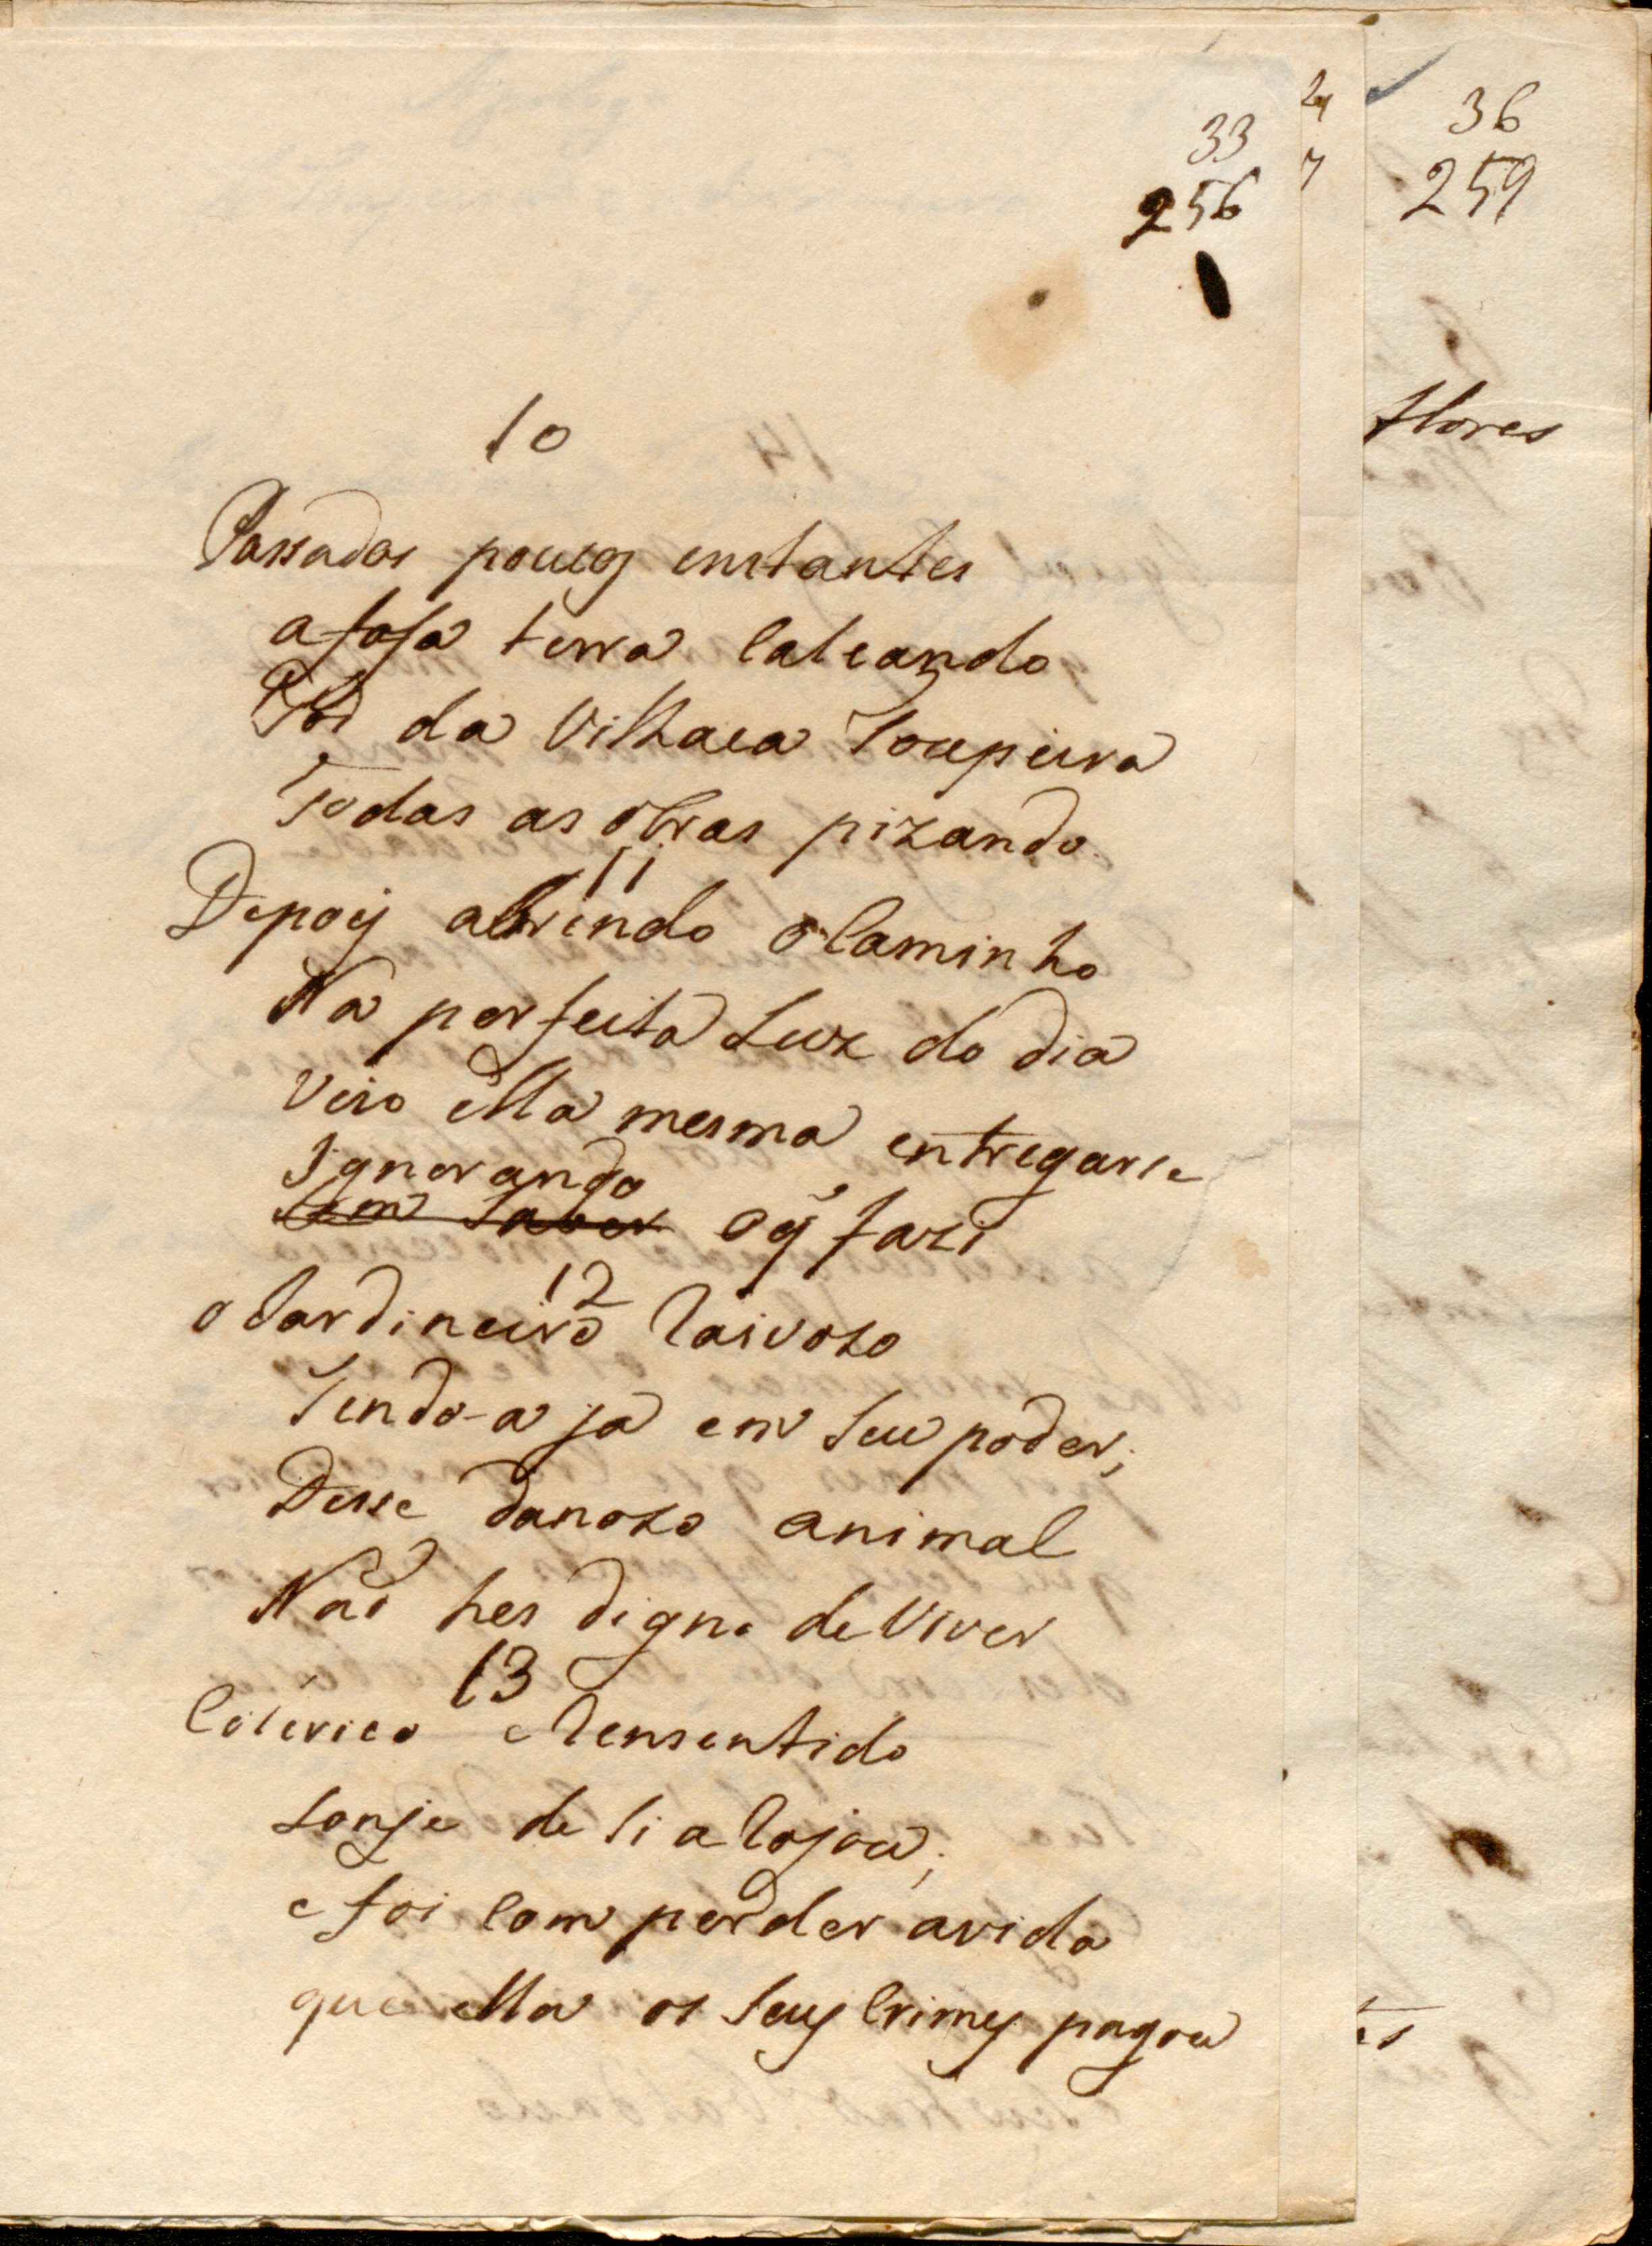 33
256
10
Passados poucos enstantes
a fofa terra calcando
Foi da Vilhaca Toupeira
Todas as obras pizando.
11
Depois abrindo o Caminho
Na perfeita Luz do dia
Veio ella mesma entregarse
Ignorando
Sem Saber o q̃ fazi
12
o Jardineiro Raivozo
Tendo-a já em Seu poder;
Desse danozo animal
Naõ hes digna de Viver
13
Colerico e Rensentido
Lonje de Si a Rojou;
e foi com perder a vida
que ella os Seus Crimes pagou
24
7
36
259
flores